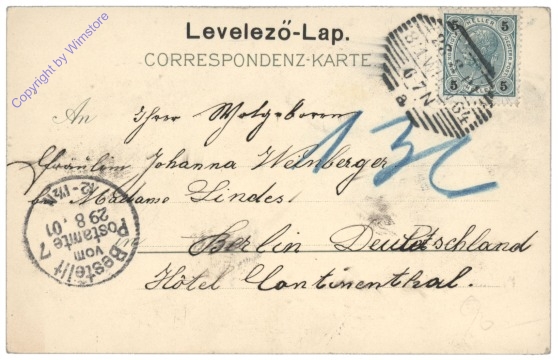 Copyright by Wimstore
Levelező-Lap.
CORRESPONDENZ-KARTE.
5 HELLER 5
5 5
64
An Ihrer Wolgeboren
Fräulein Johanna Weinberger
bei Madame Lindes
Berlin Deutschland
Hôtel Continenthal.
Bestellt
vom
Postamte 7
29.8.01
12-1½N